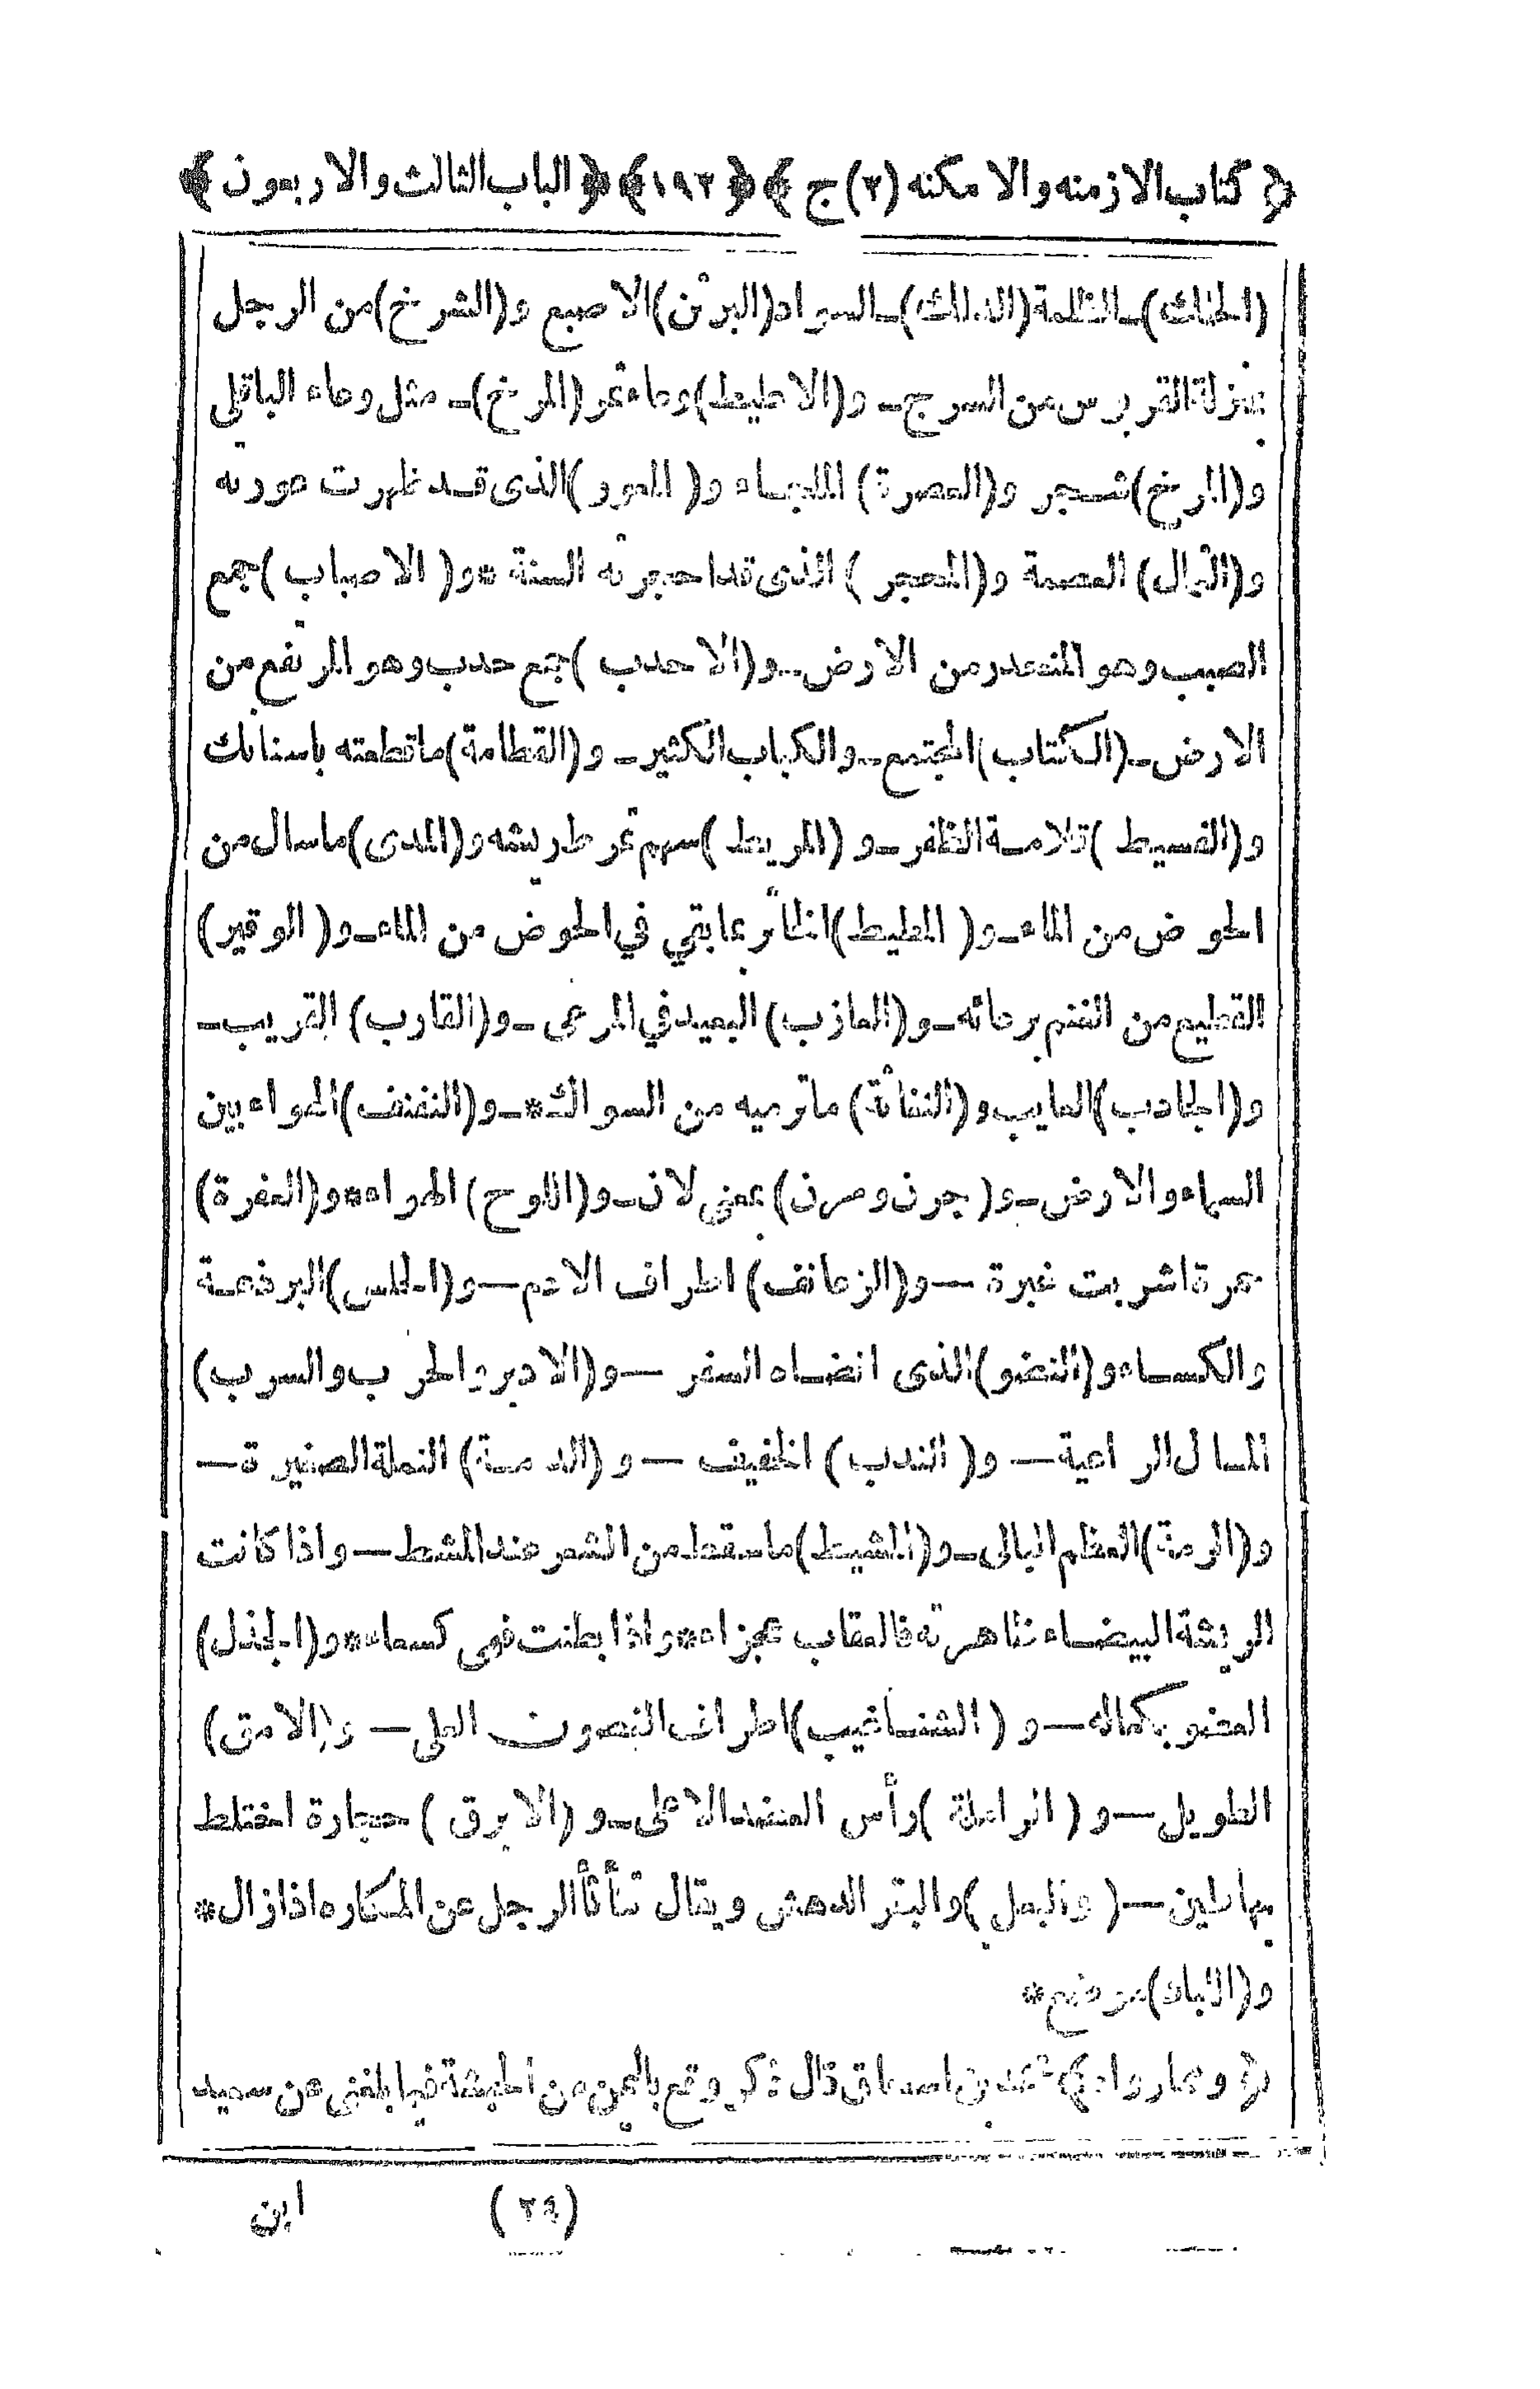 ﴿ كتاب الازمنه والا مكنه (٢) ج ﴾ ﴿١٩٣﴾ ﴿ الباب الثالث والاربعون ﴾
(الحنك)ــ الظلمة (الدلك)ــ السواد (البرثن) الاصبع و(الشرخ) من الرجل
بمنزلة القربوس من السرج ــ و(الاطيط) وعاء ثمر (المرخ)ــ مثل وعاء الباقلى
و(المرخ) شجر و(العصرة) الملجاء و(المعور) الذى قد ظهرت عورته
و(الثمال) العصمة و(المحجر) الذى قد احجرته السنة * و(الاصباب) جمع
الصبب وهو المنحدر من الارض ــ و(الاحدب) جمع حدب وهو المرتفع من
الارض ــ (الكتاب) المجتمع ــ والكباب الكثير ــ و(القطامة) ما قطعته باسنانك
و(الفسيط) قلامة الظفر ــ و(المريط) سهم تمرط ريشه و(المدى) ما سال من
الحوض من الماء ــ و(المطيط) الخاثر مما بقي في الحوض من الماء ــ و(الوقير)
القطيع من الغنم برعائه ــ و(العازب) البعيد في المرعى ــ و(القارب) القريب ــ
و(الجادب) العايب و(النفاثة) ما ترميه من السواك * ــ و(النفنف) الهواء بين
السماء والارض ــ و(جرن ومرن) بمعنى لان ــ و(اللوح) الهواء * و(العفرة)
حمرة اشربت غبرة ــ و(الزعانف) اطراف الادم ــ و(الحلس) البرذعة
والكساء و(النضو) الذى انضاه السفر ــ و(الادبر والحرب والسرب)
المال الراعية ــ و(الندب) الخفيف ــ و(الدمة) النملة الصغيرة ــ
و(الرمة) العظم البالى ــ و(المشيط) ما سقط من الشعر عند المشط ــ واذا كانت
الريشة البيضاء ظاهرته فالعقاب عجزاء * واذا بطنت فهى كسماء * و(الجذل)
العضو بكماله ــ و(الشناغيب) اطراف الغصون العلى ــ و(الامق)
الطويل ــ و(الراعلة) رأس العضد الاعلى ــ و(الابرق) حجارة اختلط
بها طين ــ والبتر الدهش ويقال ثأثأ الرجل عن المكاره اذا زال *
موضع *
﴿ ومما رواه ﴾ محمد بن اسحاق قال ذكر وقع باليمن من الحبشة فيما بلغنى عن سعيد
ابن